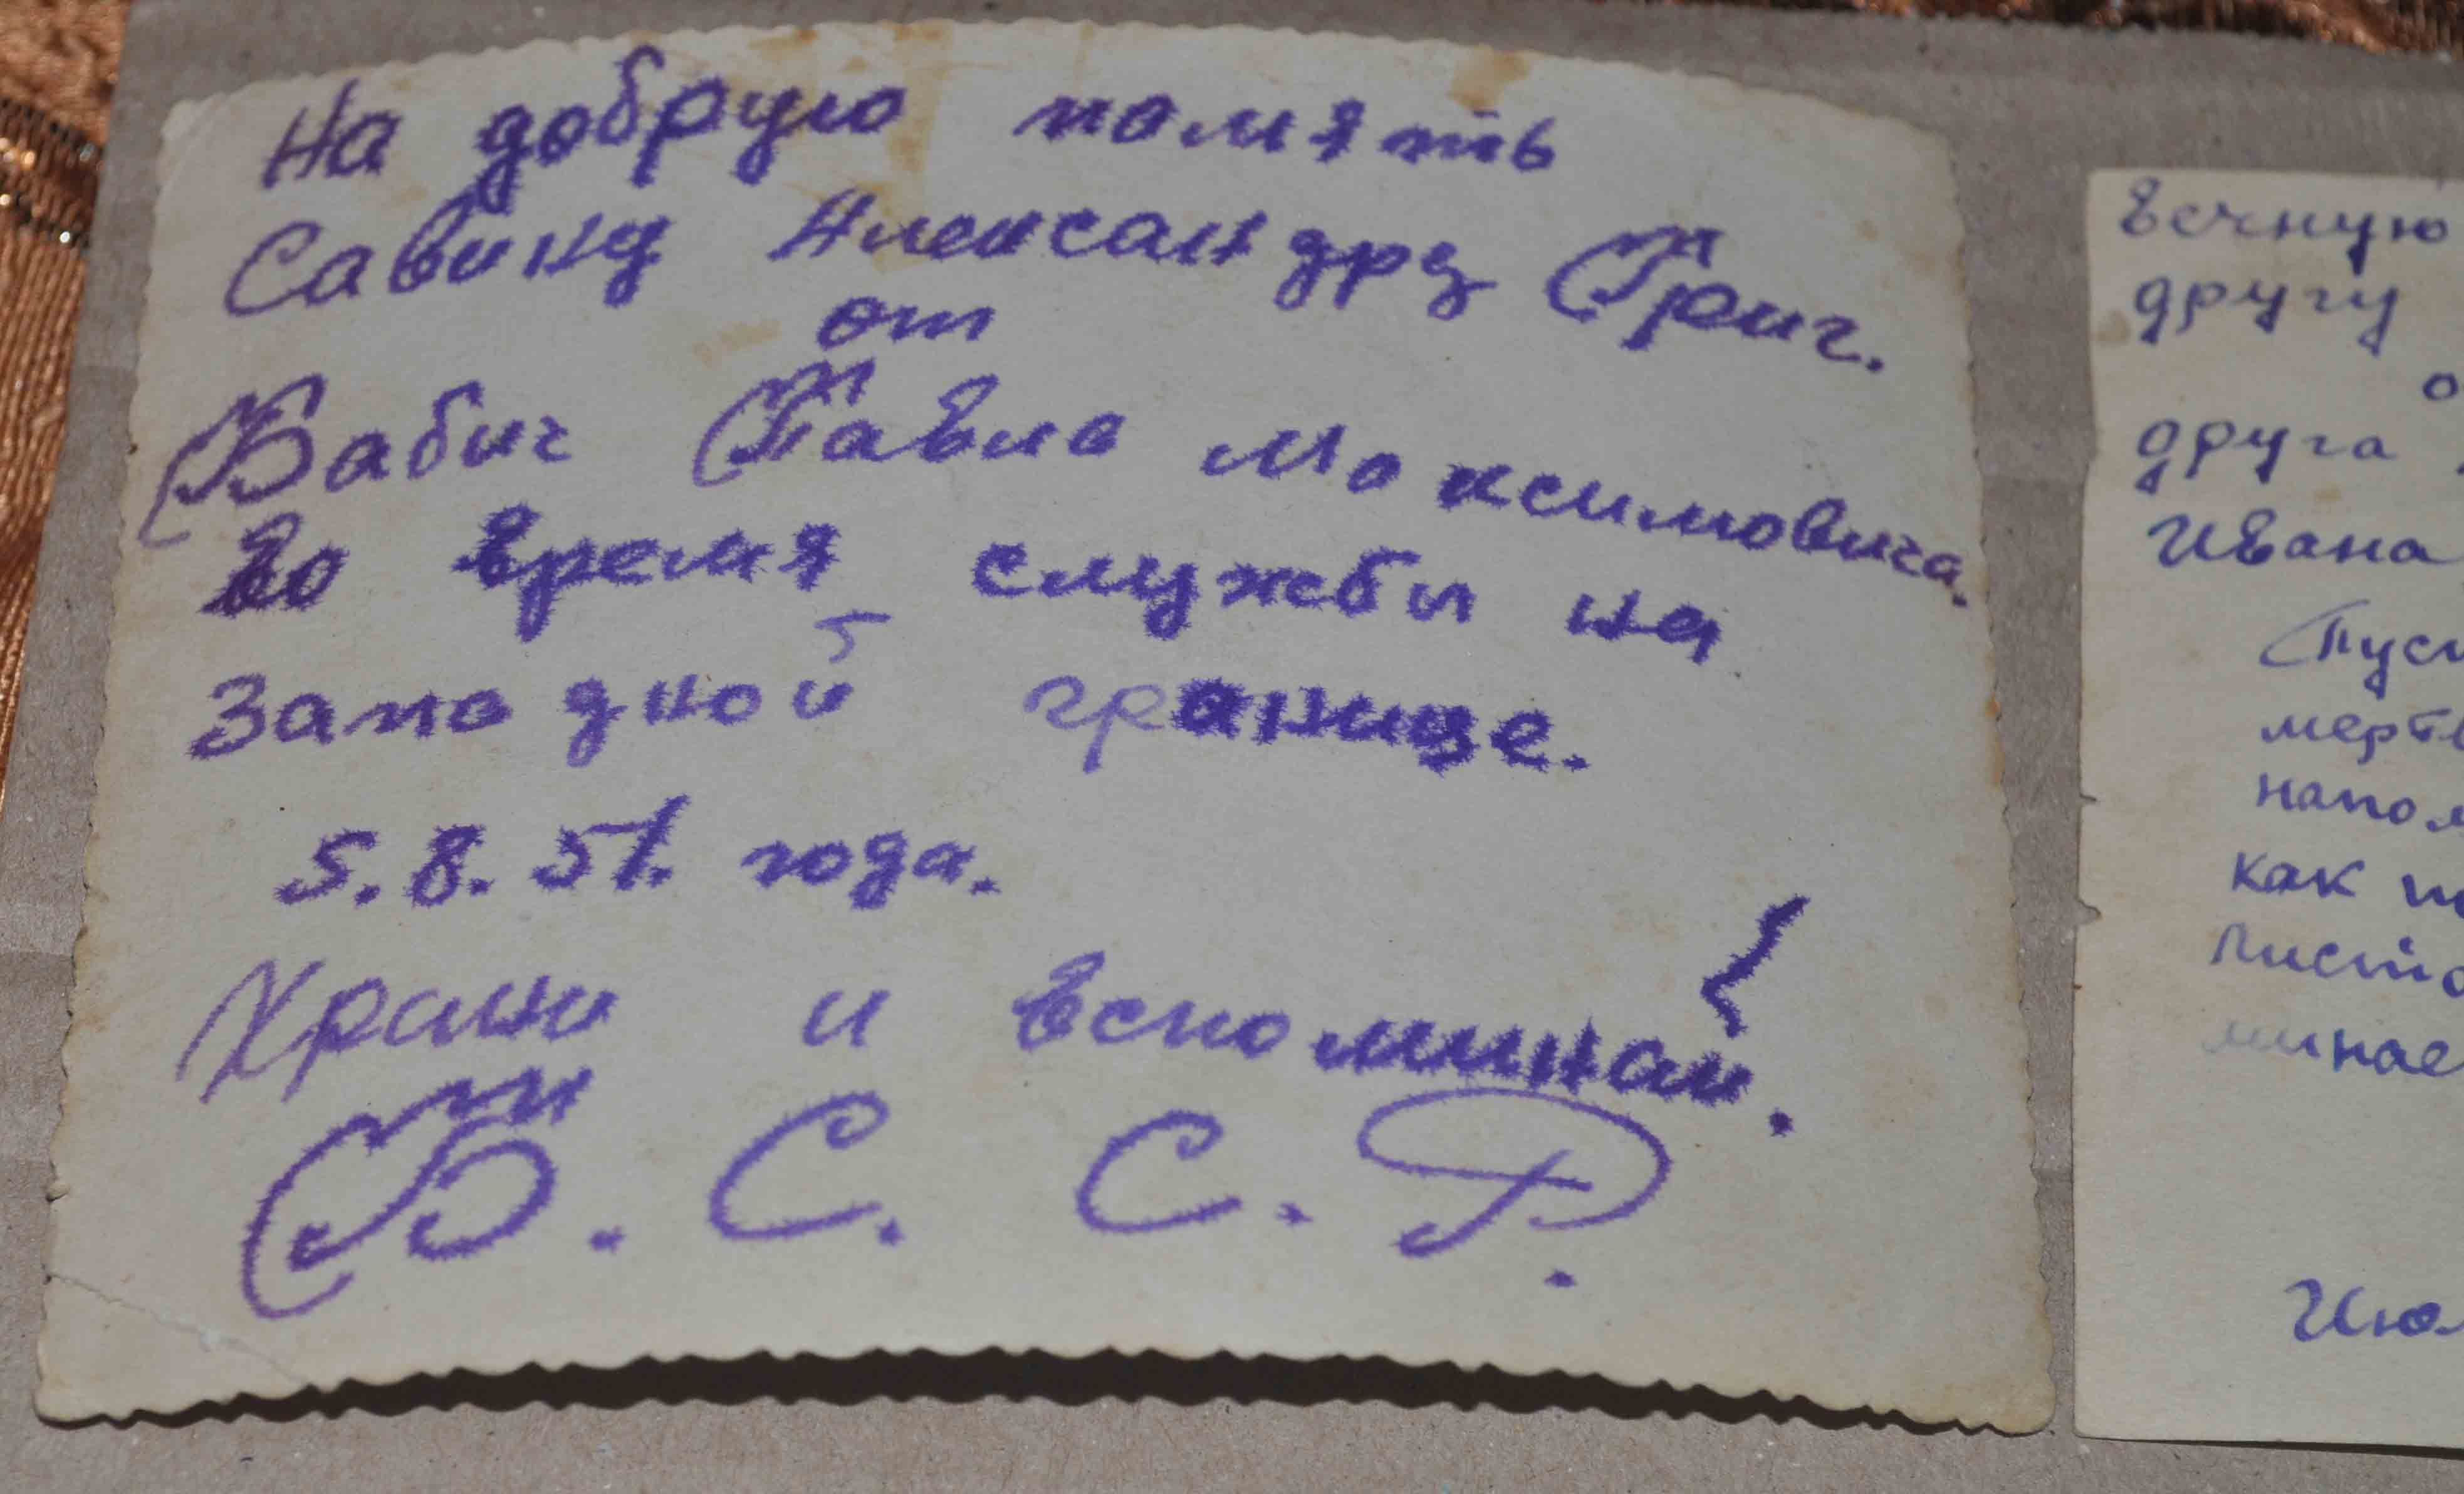 На добрую помять
Савину Александру Григ.
от
Бабич Павла Максимовича.
Во время службы на
Западной границе.
5.8.51. года.
Храни и вспоминай.
Б.С.С.Р.
вечную
другу
друга
Ивана
Пуст
мертв
напом
как
листо
минае
Июл